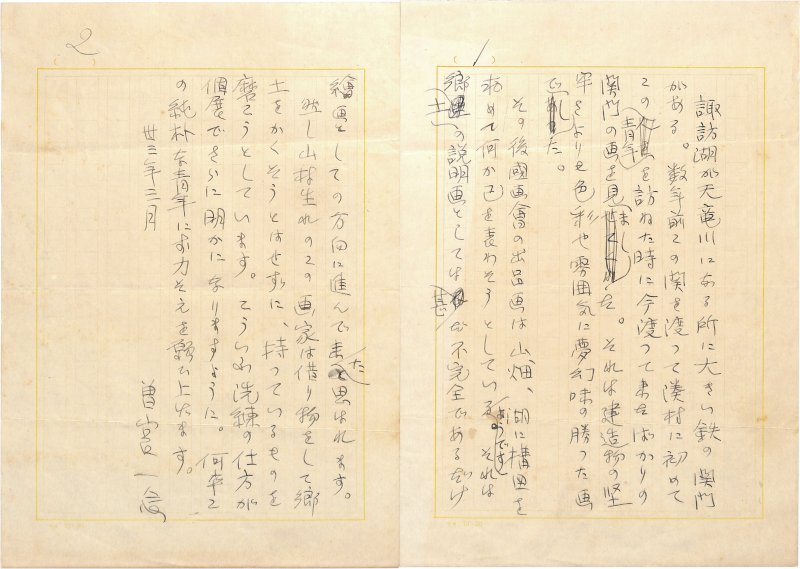 1
諏訪湖が天竜川になる所に大きい鉄の関門
がある。数年前この関を渡って湊村に初めて
この青年を訪ねた時に今渡って来たばかりの
関門の画を見ました。それは建造物の堅
牢さよりも色彩や雰囲気に夢幻味の勝った画
でした。
その後國画會の出品画は山畑、湖に構図を
求めて何か己を表わそうとしているようです。それは
郷土の説明画としては甚だ不完全であるだけ
2
繪画としての方向に進んで来たと思はれます。
然し山村生れのこの画家は借り物をして郷
土をかくそうとはせずに、持っているものを
磨こうとしています。こういふ洗練の仕方が
個展でさらに明かになりますように。何卒こ
の純朴な青年にお力そえを願い上げます。
卅三年三月
曽宮一念